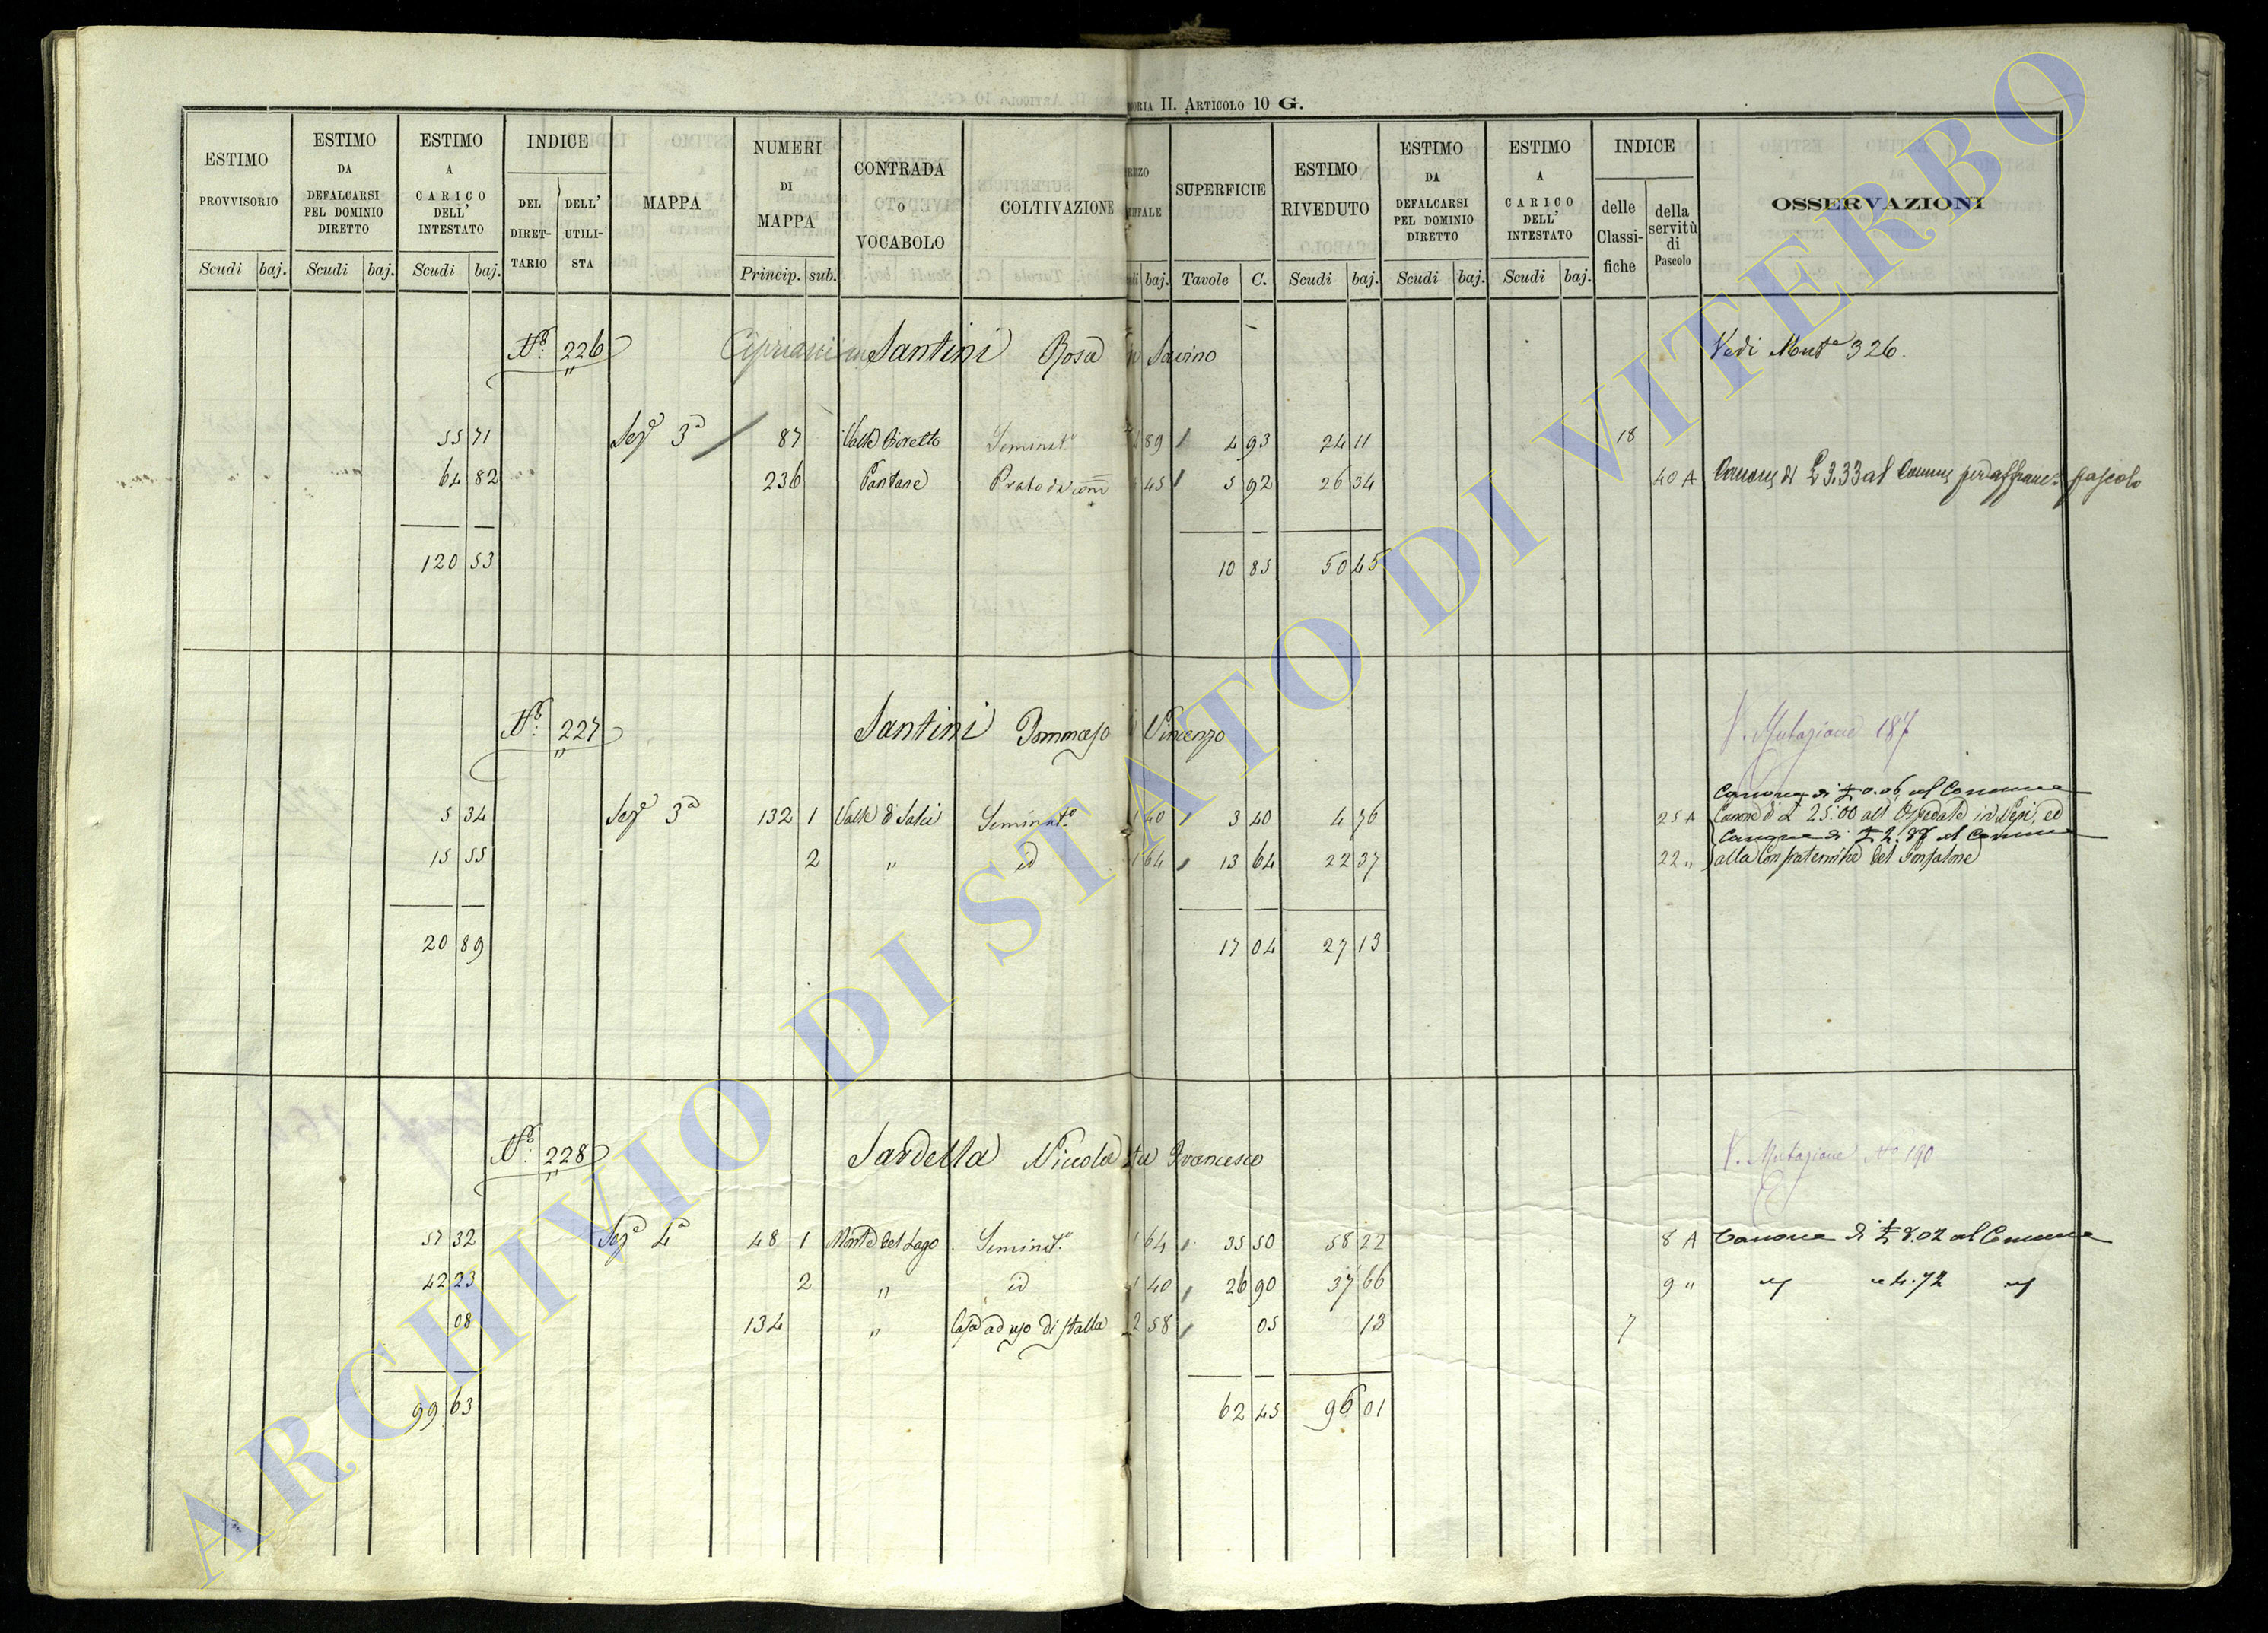 ORIA II. ARTICOLO 10 G.
ESTIMO PROVVISORIO Scudi baj.
ESTIMO DA DEFALCARSI PEL DOMINIO DIRETTO Scudi baj.
ESTIMO A CARICO DELL' INTESTATO Scudi baj.
INDICE DEL DIRET-TARIO DELL' UTILI-STA
MAPPA
NUMERI DI MAPPA Princip. sub.
CONTRADA O VOCABOLO
COLTIVAZIONE
baj.
SUPERFICIE Tavole C.
ESTIMO RIVEDUTO Scudi baj.
ESTIMO DA DEFALCARSI PEL DOMINIO DIRETTO Scudi baj.
ESTIMO A CARICO DELL' INTESTATO Scudi baj.
INDICE delle Classi-fiche della servitù di Pascolo
OSSERVAZIONI
No. 226 Cipriani in Santini Rosa Savino Vedi Mut.e 326.
55 71 Sez.e 3a 87 Valle 89 4 93 24 11 18
64 82 236 Pantane Prato 45 5 92 26 34 40 A Canone di £ 3.33 al Comune per affranc.e pascolo
120 53 10 85 50 45
No. 227 Santini Tommaso Vincenzo V. Mutazione 187
Canone di £ 0.06 al Comune
5 34 Sez.e 3a 132 1 Valle di Salci Seminat.o 40 3 40 4 76 25 A Canone di £ 25.00 all' Ospedale in Nepi, ed
Canone di £ 2. al Comune
15 55 2 " id 64 13 64 22 37 22 " alla Confraternita del Gonfalone
20 89 17 04 27 13
No. 228 Sardella Niccola Francesco V. Mutazione No 190
57 32 Sez.e 4a 48 1 Monte del Lago Seminat.o 1 64 35 50 58 22 8 A Canone di £ 8.02 al Comune
42 23 2 " id 1 40 26 90 37 66 9 " " " 4.72 "
08 134 " Casa ad uso di stalla 2 58 05 13 7
99 63 62 45 96 01
ARCHIVIO DI STATO DI VITERBO